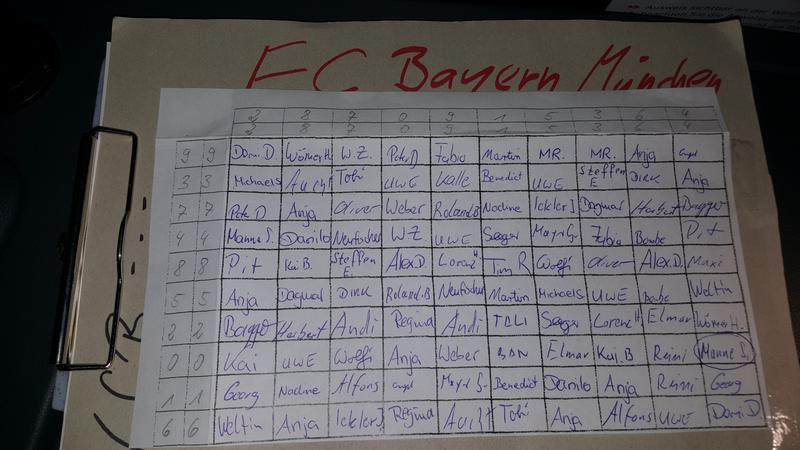 Ausweis sichtbar an der Wind
FC Bayern München
2 8 7 0 9 1 5 3 6 4
2 8 7 0 9 1 5 3 6 4
9 9 Domi D. Wörner H. W.Z. Peter D Fabio Martin MR. MR. Anja
3 3 Michaels Tobi UWE Kalle Benedict UWE Steffen E. DIRK Anja
7 7 Pete D Anja Oliver Weber Roland.B Nadine Ickler J Dagmar Herbert Baggo
4 4 Manne S. Danilo Neufischer WZ UWE Seeger Mayr G. Fabio P,t
8 8 Pit Kai B. Steffen E. Alex.D Lorenz H Tim R Wolfi Oliver Alex.D. Maxi
5 5 Anja Dagmar DIRK Roland.B Neufischer Martin Michaels UWE Weltin
2 2 Baggo Herbert Andi Regina Andi Seeger Lorenz H Elmar Wörner H.
0 0 Kai UWE Wolfi Anja Weber Elmar Kai.B Rimi Manne S.
1 1 Georg Nadine Alfons Mayr G. Benedict Danilo Anja Rimi Georg
6 6 Weltin Anja Ickler J Regina Tobi Anja Alfons UWE Domi D